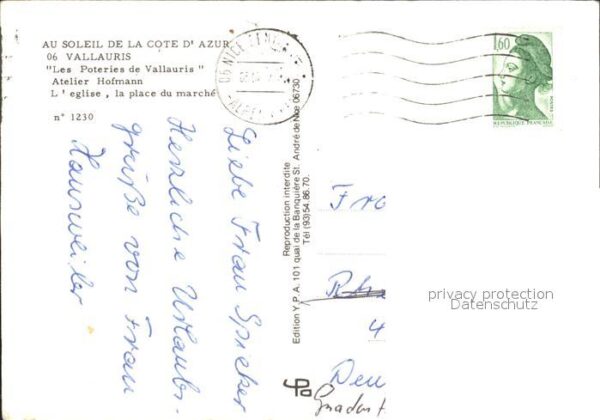 AU SOLEIL DE LA COTE D' AZUR
06 VALLAURIS
"Les Poteries de Vallauris"
Atelier Hofmann
L' eglise , la place du marché
n° 1230
Liebe Frau Spicker
Herzliche Urlaubs-
grüße von Frau
Hausweiler
Reproduction interdite
Edition Y.P.A. 101 quai de la Banquière St. André de Nice 06730
Tél (93) 54.86.70.
1,60
REPUBLIQUE FRANÇAISE
Fra
Rhe
4
Deu
privacy protection
Datenschutz